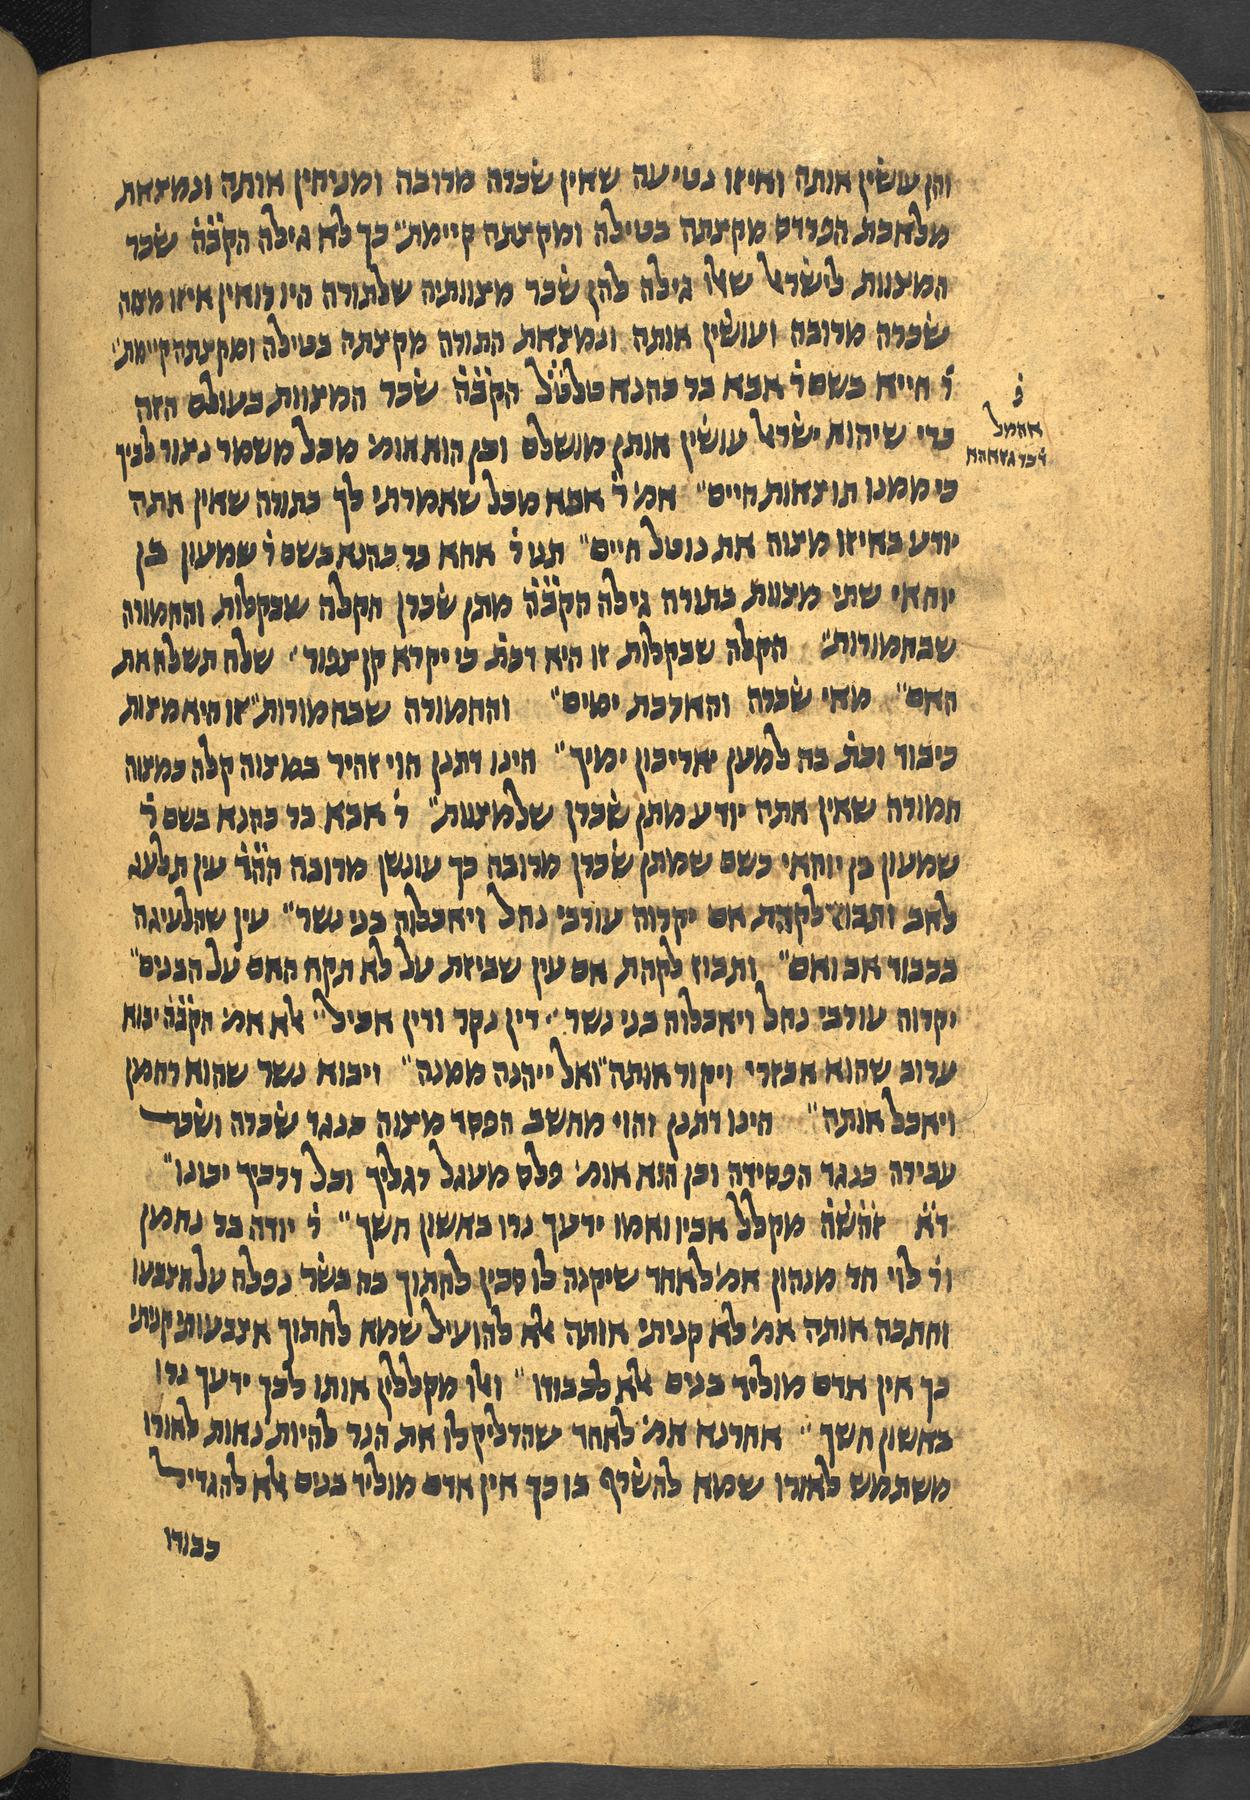 והן עושין אותה ואיזו נטיעה שאין שכרה מרובה ומניחין אותה ונמצאת
מלאכת הפרדס מקצתה בטילה ומקצתה קיימת״ כך לא גילה הק̇ב̇ה̇ שכר
המצוות לישראל שאלו גילה להן שכר מצוותיה שלתורה היו רואין איזו מצוה
שכרה מרובה ועושין אותה ונמצאת התורה מקצתה בטילה ומקצתה קיימת׳
ר̇ חייא בשם ר̇ אבא בר כהנא טלטל הק̇ב̇ה̇ שכר המצוות בעולם הזה
כדי שיהוא ישראל עושין אותן מושלם וכן הוא אומ׳ מכל משמר ניצור לביך
כי ממנו תוצאות חיים״ אמ׳ ר̇ אבא מכל שאמרתי לך בתורה שאין אתה
יודע באיזו מצוה את נוטל חיים״ תני ר̇ אחא בר כהנא בשם ר̇ שמעון בן
יוחאי שתי מצוות בתורה גילה הק̇ב̇ה̇ מתן שכרן הקלה שבקלות והחמורה
שבחמורות״ הקלה שבקלות זו היא דכת̇ כי יקרא קן צפור״ שלח תשלח את
האם״ מאי שכרה והארכת ימים״ והחמורה שבחמורות״ זו היא מצות
כיבוד וכת̇ בה למען יאריכון ימיך״ היינו דתנן הוי זהיר במצוה קלה כמצוה
חמורה שאין אתה יודע מתן שכרן שלמצוות״ ר̇ אבא בר כהנא בשם ר̇
שמעון בן יוחאי כשם שמתן שכרן מרובה כך עונשן מרובה ה̇ה̇ד̇ עין תלעג
לאב ותבוז לקהת אם יקרוה עורבי נחל ויאכלוה בני נשר״ עין שהלעיגה
בכבוד אב ואם״ ותבוז לקהת אם עין שביזת על לא תקח האם על הבנים״
יקרוה עורבי נחל ויאכלוה בני נשר״ דין נקר ודין אכיל״ אלא אמ׳ הק̇ב̇ה̇ יבוא
ערוב שהוא אכזרי ויקור אותה״ ואל ייהנה ממנה״ ויבוא נשר שהוא רחמן
ויאכל אותה״ היינו דתנן והוי מחשב הפסד מצוה כנגד שכרה ושכר
עבירה כנגד הפסידה וכן הוא אומ׳ פלס מעגל רגליך וכל דרכיך יכונו״
ד̇א̇ ז̇ה̇ש̇ה̇ מקלל אביו ואמו ידעך נרו באשון חשך״ ר̇ יודה בר נחמן
ור̇ לוי חד מנהון אמ׳ לאחד שיקנה לו סכין לחתוך בה בשר נפלה על אצבעו
וחתכה אותה אמ׳ לא קניתי אותה אלא להועיל שמא לחתוך אצבעותי קניתי
כך אין אדם מוליד בנים אלא לכבודו״ ואלו מקללין אותו לכך ידעך נרו
באשון חשך״ אחרנא אמ׳ לאחד שהדליק לו את הנר להיות נאות לאורו
משתמש לאורו שמא להשרף בו כך אין אדם מוליד בנים אלא להגדיל
כבודו